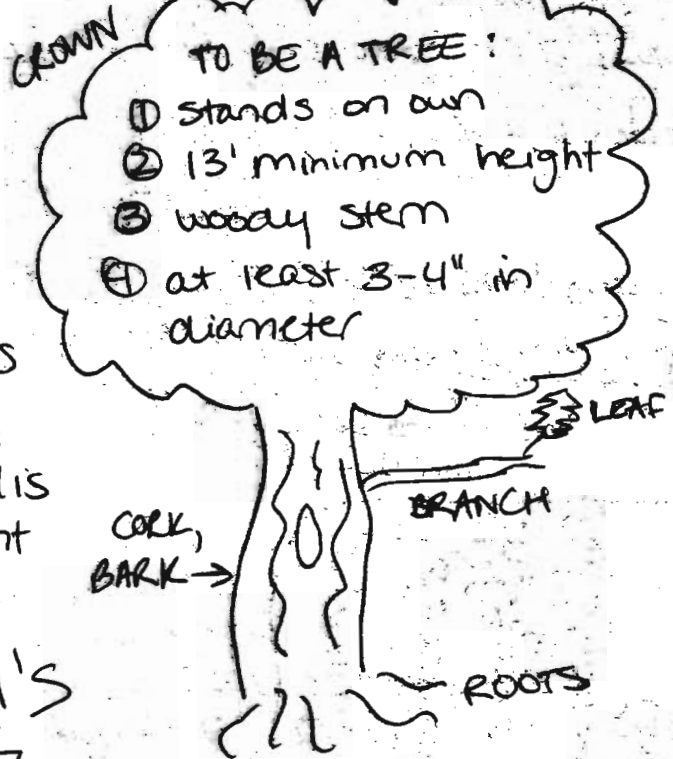 CROWN
TO BE A TREE:
① stands on own
② 13' minimum height
③ woody stem
④ at least 3-4" in
diameter
s
LEAF
is
BRANCH
nt
CORK,
BARK →
's
ROOTS